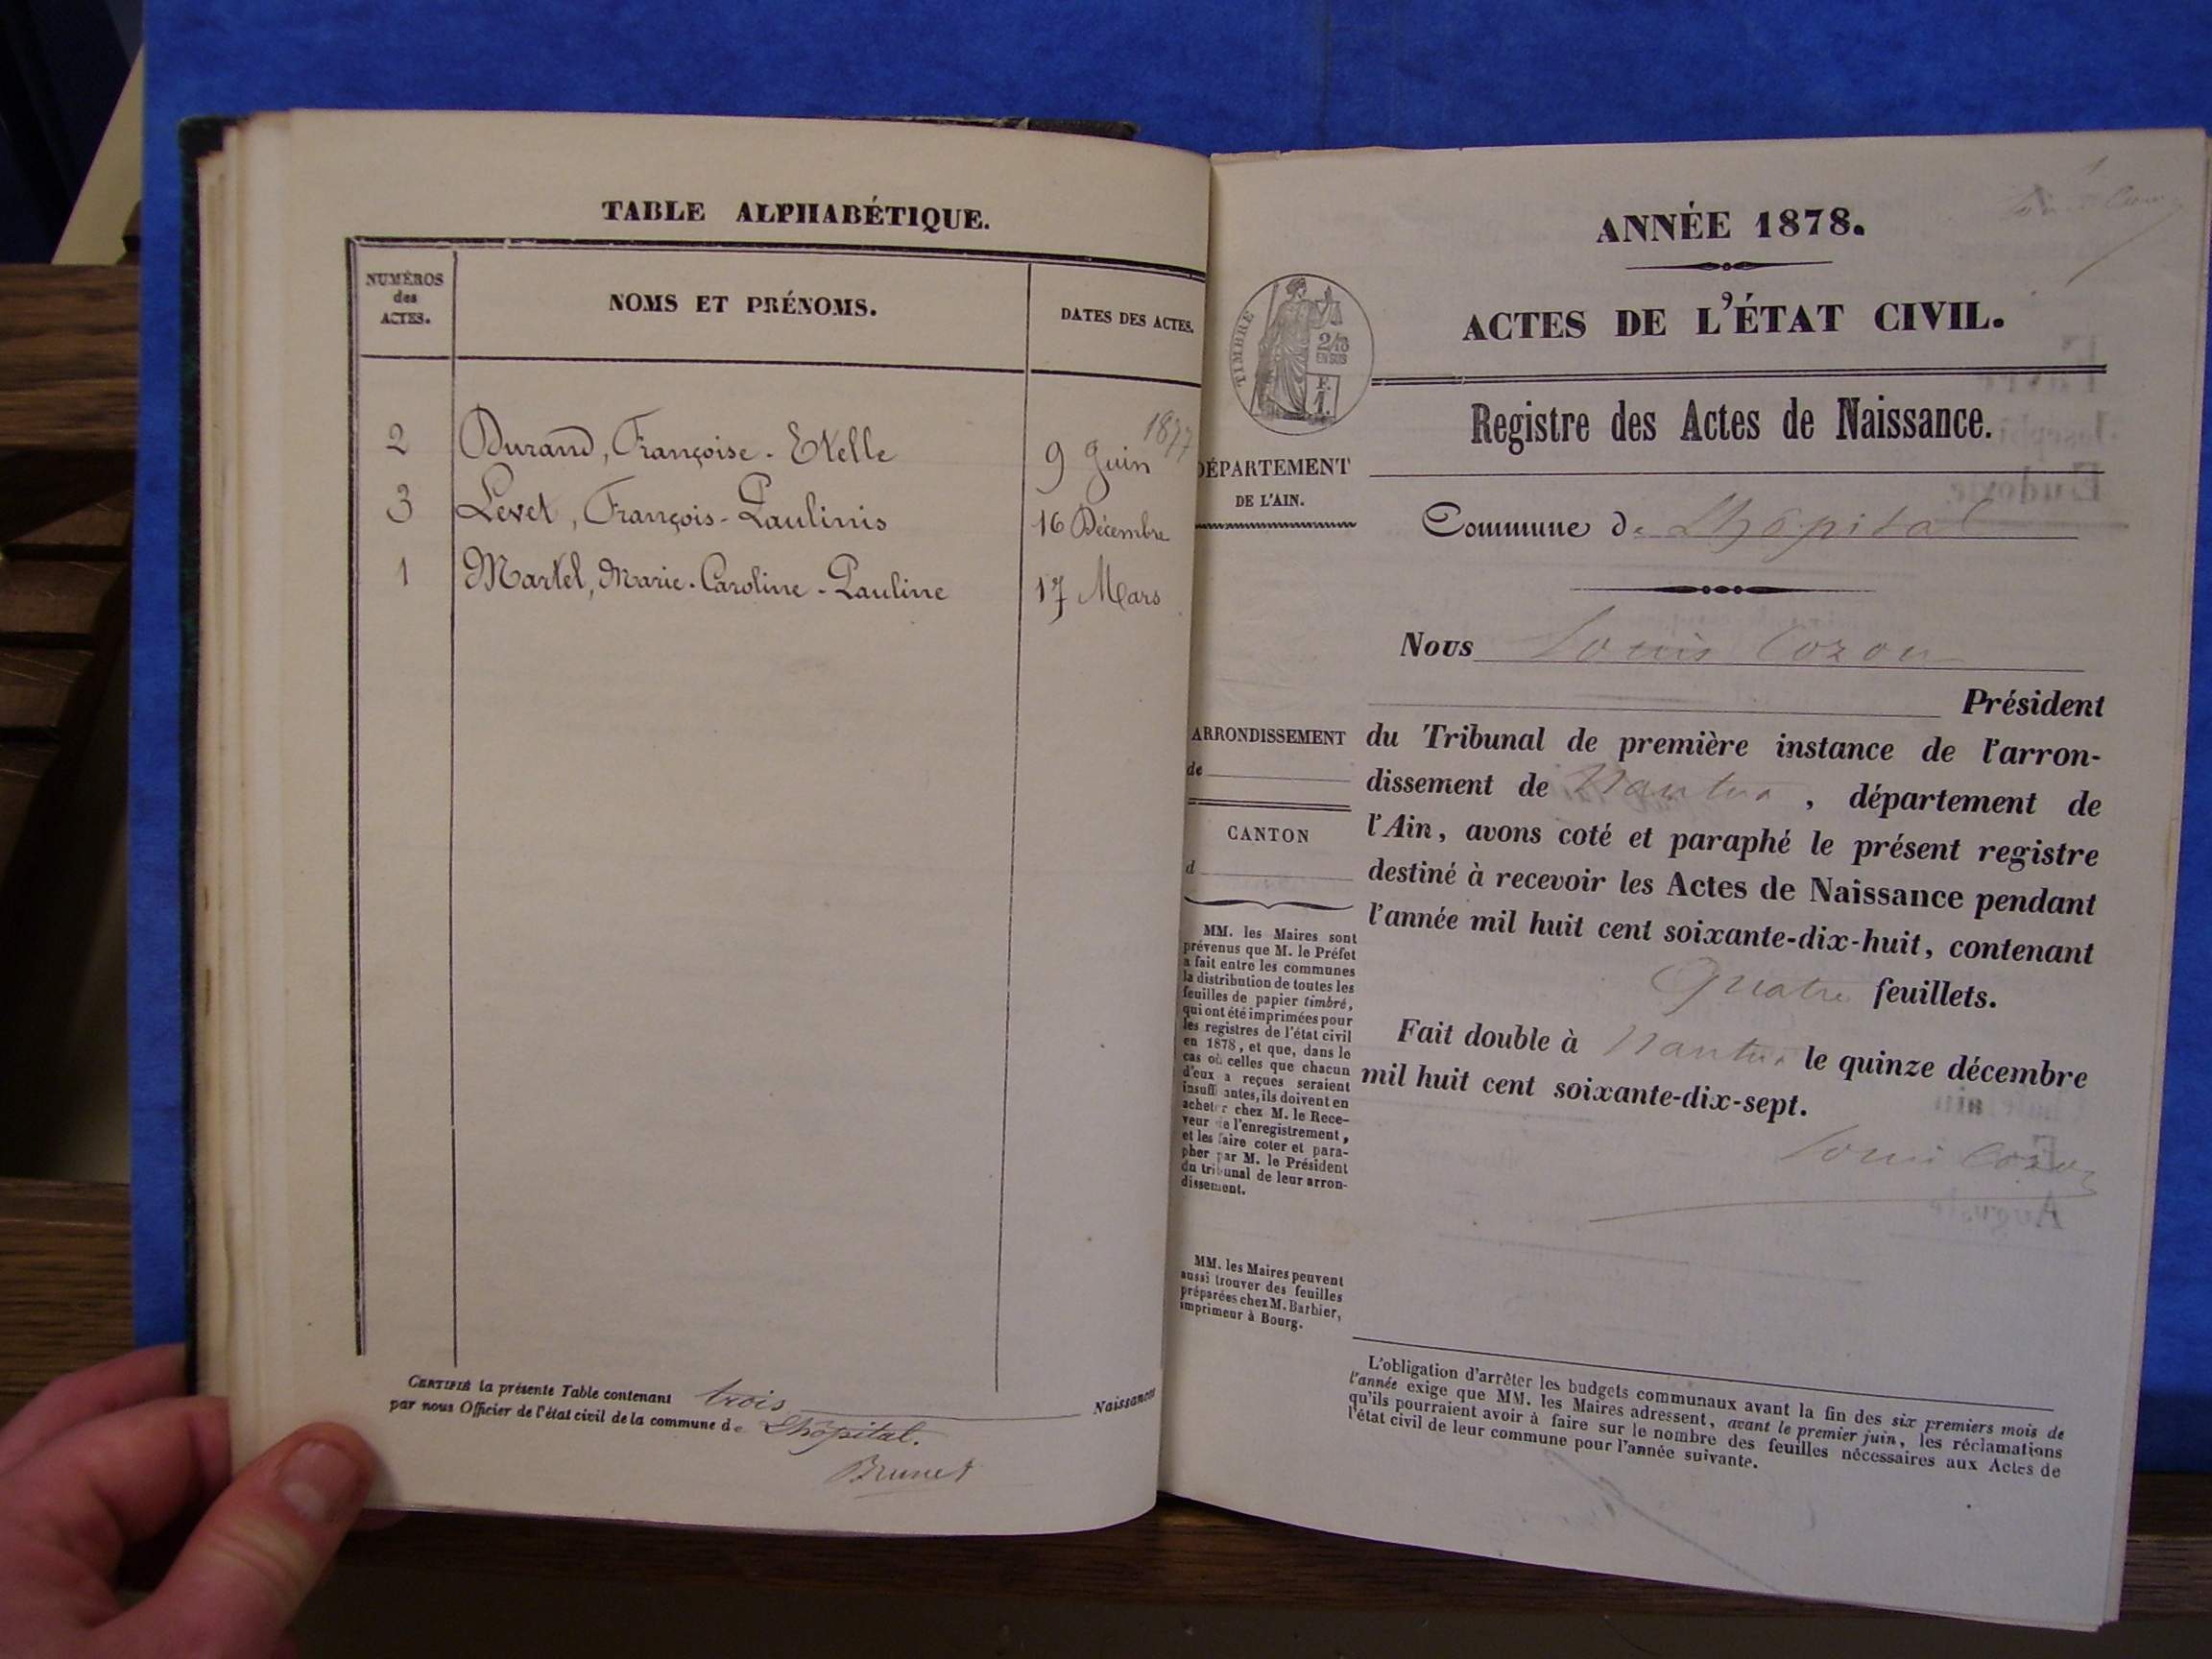 TABLE ALPHABÉTIQUE.
NUMÉROS
des
ACTES.
NOMS ET PRÉNOMS.
DATES DES ACTES.
1877
2 Durand, Françoise-Etelle 9 Juin
3 Levet, François-Paulinis 16 Décembre
1 Martel, Marie-Caroline-Pauline 17 Mars
CERTIFIÉ la présente Table contenant trois Naissances
par nous Officier de l'état civil de la commune de Lhôpital.
Brunet
1
ANNÉE 1878.
ACTES DE L'ÉTAT CIVIL.
TIMBRE
2/10
EN SUS
F.
1.
Registre des Actes de Naissance.
DÉPARTEMENT
DE L'AIN.
Commune de Lhôpital
Nous Louis Cozon
Président
ARRONDISSEMENT
de
CANTON
d
du Tribunal de première instance de l'arron-
dissement de Nantua, département de
l'Ain, avons coté et paraphé le présent registre
destiné à recevoir les Actes de Naissance pendant
l'année mil huit cent soixante-dix-huit, contenant
Quatre feuillets.
Fait double à Nantua le quinze décembre
mil huit cent soixante-dix-sept.
Louis Cozon
MM. les Maires sont
prévenus que M. le Préfet
a fait entre les communes
la distribution de toutes les
feuilles de papier timbré,
qui ont été imprimées pour
les registres de l'état civil
en 1878, et que, dans le
cas où celles que chacun
d'eux a reçues seraient
insuffisantes, ils doivent en
acheter chez M. le Rece-
veur de l'enregistrement,
et les faire coter et para-
pher par M. le Président
du tribunal de leur arron-
dissement.
MM. les Maires peuvent
aussi trouver des feuilles
préparées chez M. Barbier,
imprimeur à Bourg.
L'obligation d'arrêter les budgets communaux avant la fin des six premiers mois de
l'année exige que MM. les Maires adressent, avant le premier juin, les réclamations
qu'ils pourraient avoir à faire sur le nombre des feuilles nécessaires aux Actes de
l'état civil de leur commune pour l'année suivante.